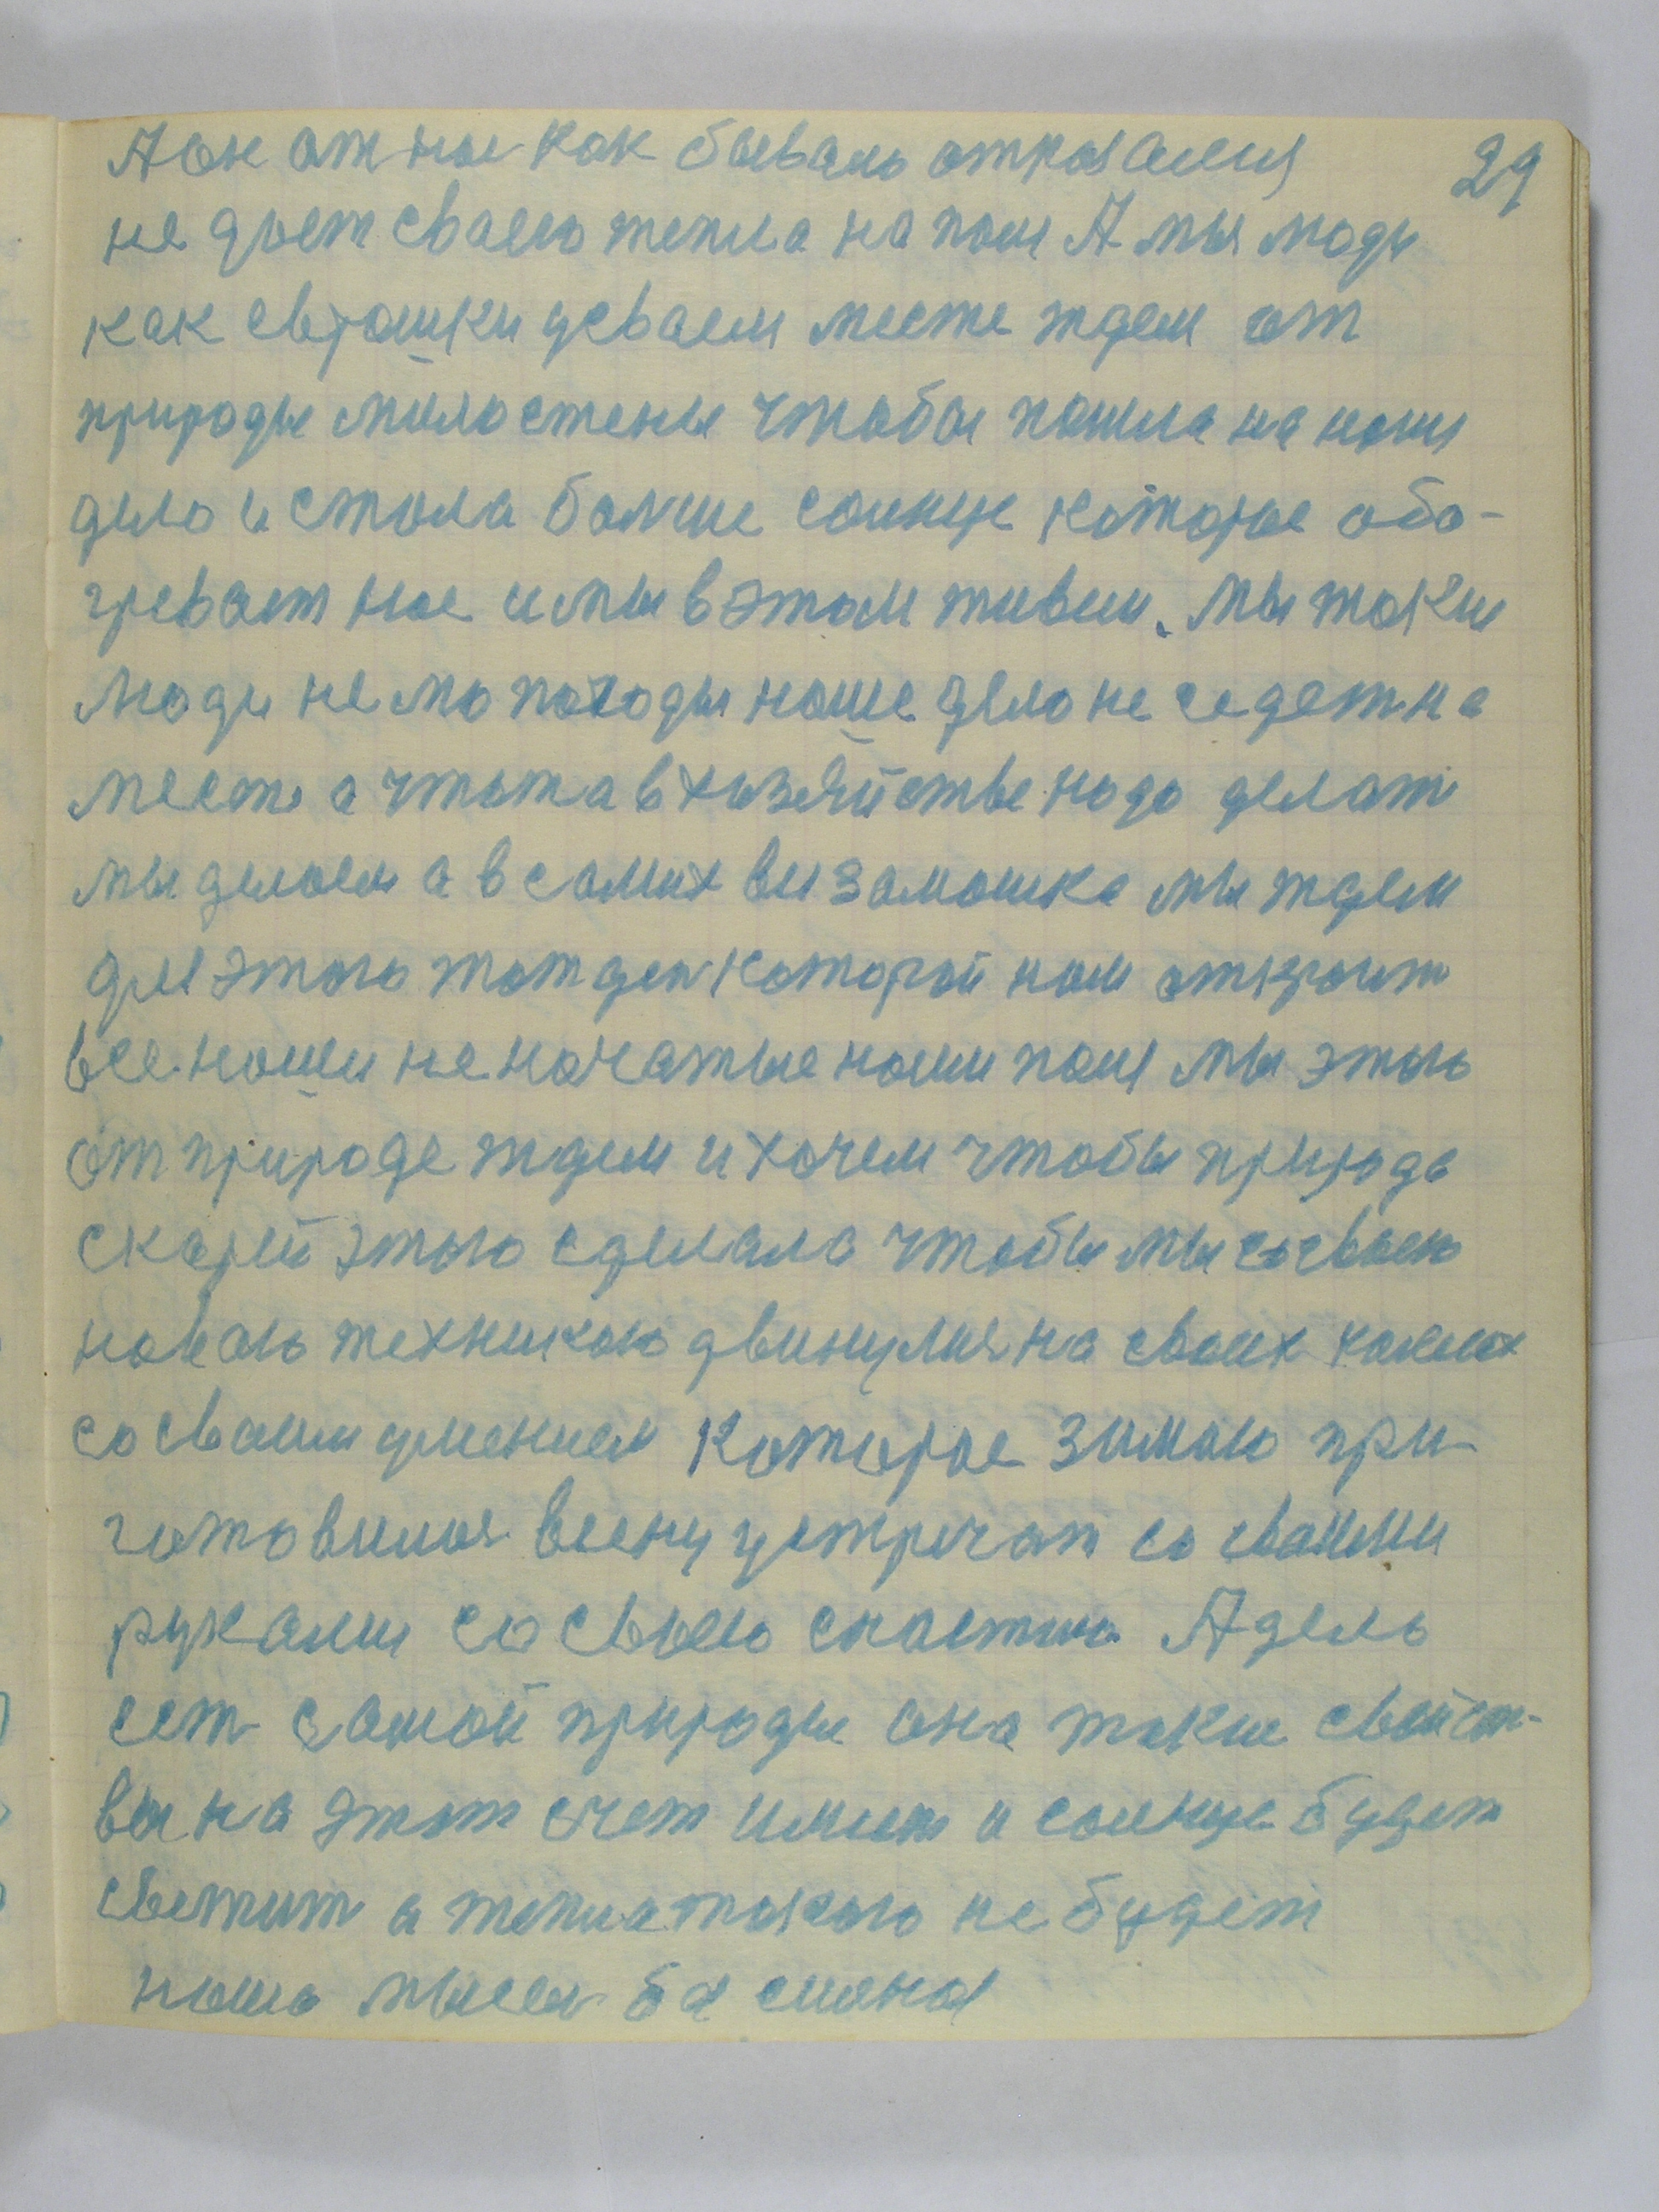 29
А он от нас как бываль отказался
не дает сваего тепла на поля А мы люди
как евражки усваем месте ждем от
природы милостены чтобы пошла на наше
дело и стала больше солнце которае обо-
гревает нас и мы в этом живем. мы такие
люди не мо погоды наше дело не седет на
месте а чтота в хазяйстве надо делат
мы делаем а в самих
мы ждем
для этого тот ден каторай нам откроит
все наши не начатые наши поля мы этого
от природе ждем и хочем чтобы природа
скарей этого сделала чтобы мы со сваею
новою техникаю двинулися на своих
со сваим умением которае зимаю при
готовился весну устречат со сваими
руками со сваею снастию А дело
ест самой природы она такие свойст-
вы на этот счет имеет и солнце будет
светит а тепла такого не будет
наша мысел